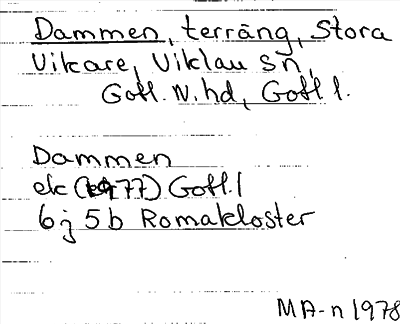 Dammen, terräng, Stora
Vikare, Viklau sn,
Gotl. N. hd, Gotl l.
Dammen
ek (1977) Gotl. l
6j 5b Romakloster
MA-n 1978